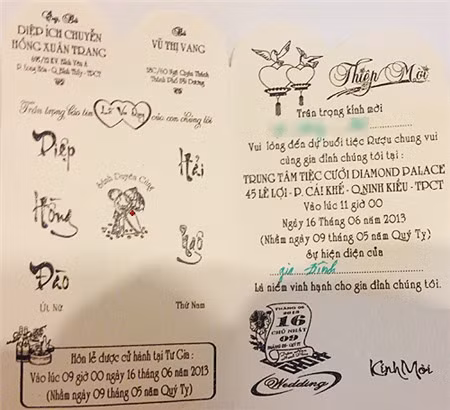 Ông, Bà
DIỆP ÍCH CHUYỂN
HỒNG XUÂN TRANG
Bà
VŨ THỊ VANG
Thành Phố Hải Dương
Trân trọng báo tin
Lễ
của con chúng tôi
Diệp
Hồng
Đào
Hải
Ngô
Út Nữ
Thứ Nam
Hôn lễ được cử hành tại Tư Gia :
Vào lúc 09 giờ 00 ngày 16 tháng 06 năm 2013
(Nhằm ngày 09 tháng 05 năm Quý Tỵ)
Thiệp Mời
Trân trọng kính mời
Vui lòng đến dự buổi tiệc Rượu chung vui
cùng gia đình chúng tôi tại :
TRUNG TÂM TIỆC CƯỚI DIAMOND PALACE
45 LÊ LỢI - P. CÁI KHẾ - Q.NINH KIỀU - TPCT
Vào lúc 11 giờ 00
Ngày 16 Tháng 06 năm 2013
(Nhằm ngày 09 tháng 05 năm Quý Tỵ)
Sự hiện diện của
gia đình
Là niềm vinh hạnh cho gia đình chúng tôi.
THÁNG 06
2013
16
CHỦ NHẬT
09
Wedding
Kính Mời